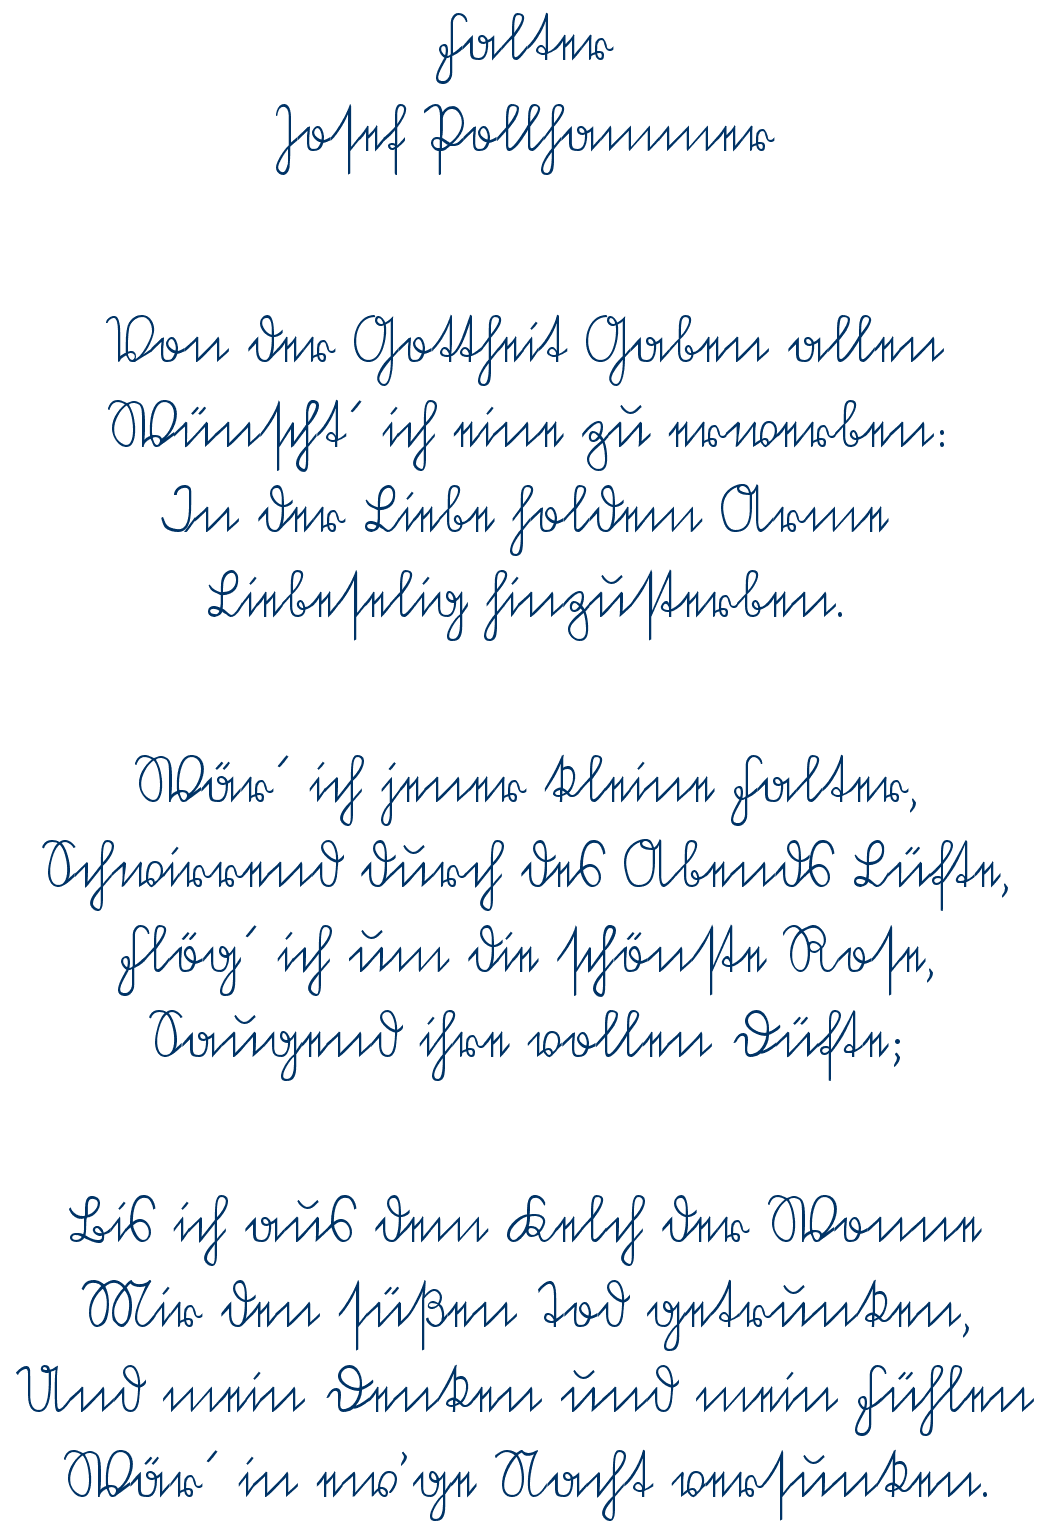 Falter
Josef Pollhammer
Von der Gottheit Gaben allen
Wünscht´ ich eine zu erwerben:
In der Liebe holdem Arme
Liebeselig hinzusterben.
Wär´ ich jener kleine Falter,
Schwirrend durch des Abends Lüfte,
Flög´ ich um die schönste Rose,
Saugend ihre vollen Düfte;
Bis ich aus dem Kelch der Wonne
Mir den süßen Tod getrunken,
Und mein Denken und mein Fühlen
Wär´ in ew’ge Nacht versunken.